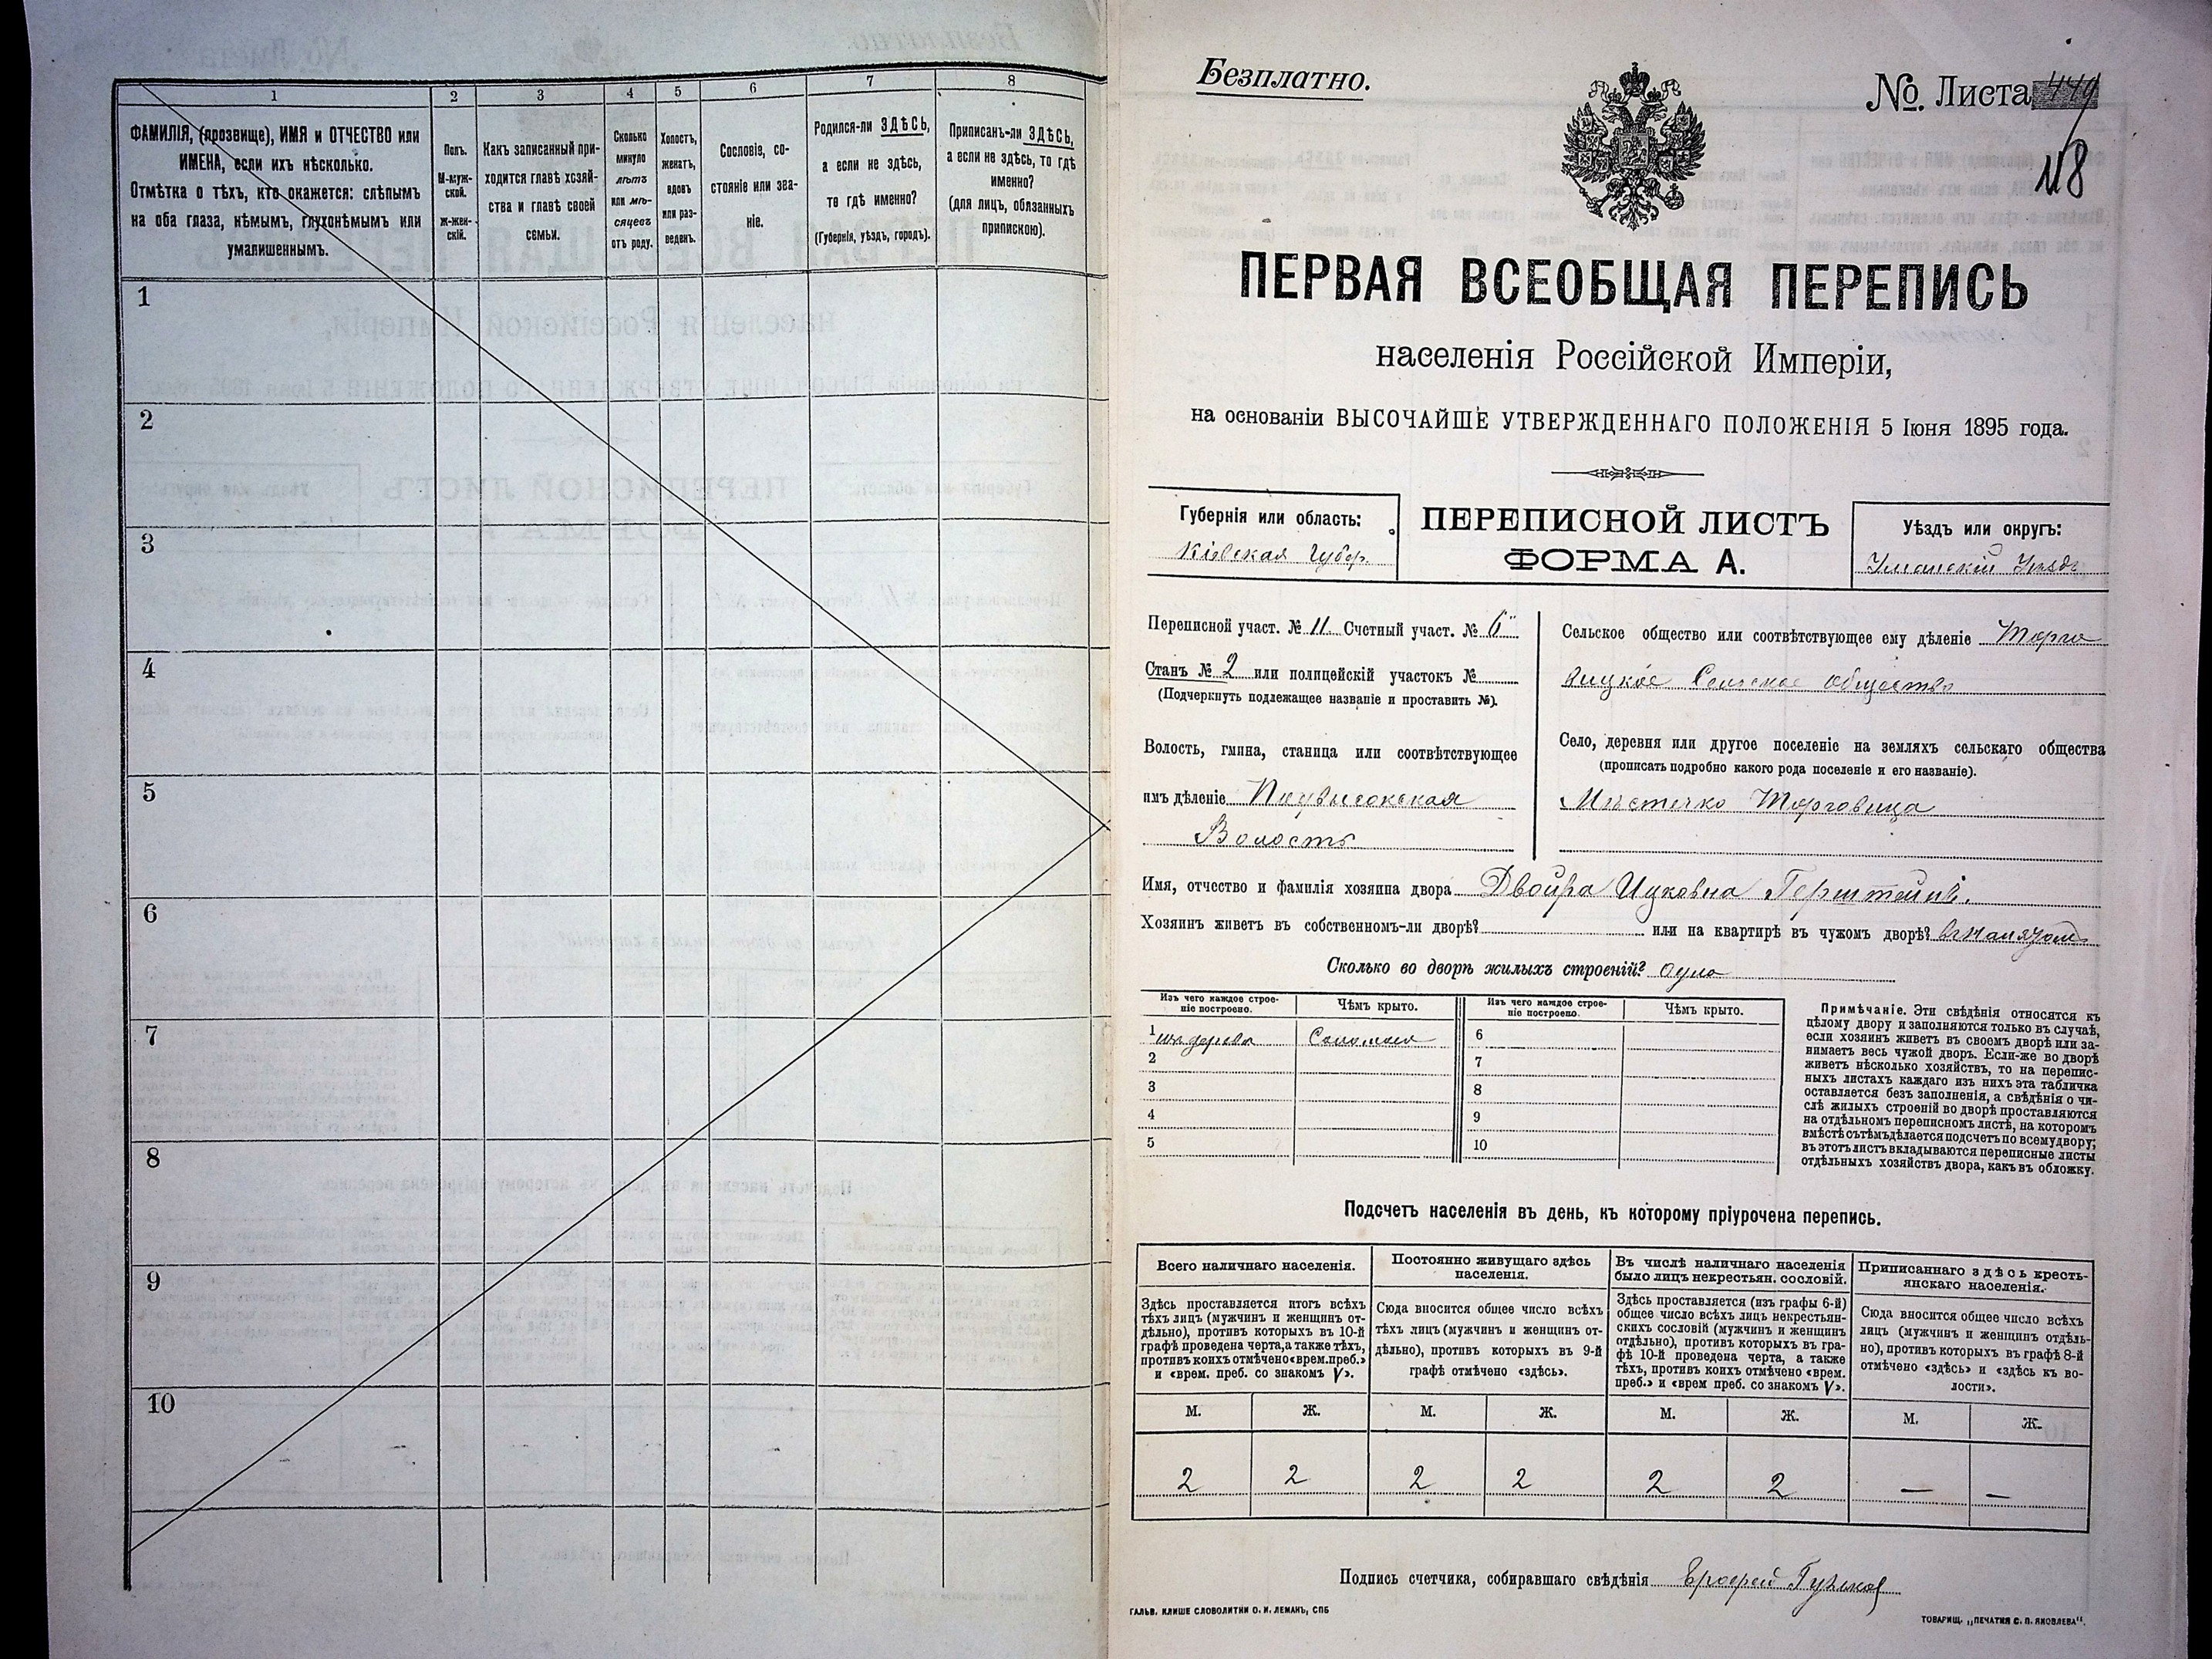 1
2
3
4
5
6
7
8
ФАМИЛІЯ, (прозвище), ИМЯ и ОТЧЕСТВО или
ИМЕНА, если ихъ нѣсколько.
Отмѣтка о тѣхъ, кто окажется: слѣпымъ
на оба глаза, нѣмымъ, глухонѣмымъ или
умалишеннымъ.
Полъ.
М-муж-
ской.
ж-жен-
скій.
Какъ записанный при-
ходится главѣ хозяй-
ства и главѣ своей
семьи.
Сколько
минуло
лѣтъ
или мѣ-
сяцевъ
отъ роду.
Холостъ,
женатъ,
вдовъ
или раз-
веденъ.
Сословіе, со-
стояніе или зва-
ніе.
Родился-ли ЗДѢСЬ,
а если не здѣсь,
то гдѣ именно?
(Губернія, уѣздъ, городъ).
Приписанъ-ли ЗДѢСЬ,
а если не здѣсь, то гдѣ
именно?
(для лицъ, обязанныхъ
припискою).
1
2
3
4
5
6
7
8
9
10
Безплатно.
№ Листа 449
118
ПЕРВАЯ ВСЕОБЩАЯ ПЕРЕПИСЬ
населенія Россійской Имперіи,
на основаніи ВЫСОЧАЙШЕ УТВЕРЖДЕННАГО ПОЛОЖЕНІЯ 5 Іюня 1895 года.
Губернія или область:
Кіевская Губер.
ПЕРЕПИСНОЙ ЛИСТЪ
ФОРМА А.
Уѣздъ или округъ:
Уманскій Уѣздъ
Переписной участ. № 11. Счетный участ. № 6
Станъ № 2 или полицейскій участокъ №
(Подчеркнуть подлежащее названіе и проставить №).
Волость, гмина, станица или соотвѣтствующее
имъ дѣленіе Подвысокская
Волость
Сельское общество или соотвѣтствующее ему дѣленіе Торго
вицкое Сельское общество
Село, деревня или другое поселеніе на земляхъ сельскаго общества
(прописать подробно какого рода поселеніе и его названіе).
Мѣстечко Торговица
Имя, отчество и фамилія хозяина двора Двойра Ицковна Герштейнъ.
Хозяинъ живетъ въ собственномъ-ли дворѣ? или на квартирѣ въ чужомъ дворѣ?
Сколько во дворѣ жилыхъ строеній? одно
Изъ чего каждое строе-
ніе построено.
Чѣмъ крыто.
Изъ чего каждое строе-
ніе построено.
Чѣмъ крыто.
1 изъ дерева Соломою
2
3
4
5
6
7
8
9
10
Примѣчаніе. Эти свѣдѣнія относятся къ
цѣлому двору и заполняются только въ случаѣ,
если хозяинъ живетъ въ своемъ дворѣ или за-
нимаетъ весь чужой дворъ. Если-же во дворѣ
живетъ нѣсколько хозяйствъ, то на перепис-
ныхъ листахъ каждаго изъ нихъ эта табличка
оставляется безъ заполненія, а свѣдѣнія о чи-
слѣ жилыхъ строеній во дворѣ проставляются
на отдѣльномъ переписномъ листѣ, на которомъ
вмѣстѣ съ тѣмъ дѣлается подсчетъ по всему двору;
въ этотъ листъ вкладываются переписные листы
отдѣльныхъ хозяйствъ двора, какъ въ обложку.
Подсчетъ населенія въ день, къ которому пріурочена перепись.
Всего наличнаго населенія.
Постоянно живущаго здѣсь
населенія.
Въ числѣ наличнаго населенія
было лицъ некрестьян. сословій.
Приписаннаго здѣсь кресть-
янскаго населенія.
Здѣсь проставляется итогъ всѣхъ
тѣхъ лицъ (мужчинъ и женщинъ от-
дѣльно), противъ которыхъ въ 10-й
графѣ проведена черта, а также тѣхъ,
противъ коихъ отмѣчено «врем. преб.»
и «врем. преб. со знакомъ V».
Сюда вносится общее число всѣхъ
тѣхъ лицъ (мужчинъ и женщинъ от-
дѣльно), противъ которыхъ въ 9-й
графѣ отмѣчено «здѣсь».
Здѣсь проставляется (изъ графы 6-й)
общее число всѣхъ лицъ некрестьян-
скихъ сословій (мужчинъ и женщинъ
отдѣльно), противъ которыхъ въ гра-
фѣ 10-й проведена черта, а также
тѣхъ, противъ коихъ отмѣчено «врем.
преб.» и «врем преб. со знакомъ V».
Сюда вносится общее число всѣхъ
лицъ (мужчинъ и женщинъ отдѣль-
но), противъ которыхъ въ графѣ 8-й
отмѣчено «здѣсь» и «здѣсь къ во-
лости».
М. Ж. М. Ж. М. Ж. М. Ж.
2 2 2 2 2 2 — —
Подпись счетчика, собиравшаго свѣдѣнія Ерофей
ГАЛЬВ. КЛИШЕ СЛОВОЛИТНИ О. И. ЛЕМАНЪ, СПБ
ТОВАРИЩ. „ПЕЧАТНЯ С. П. ЯКОВЛЕВА".